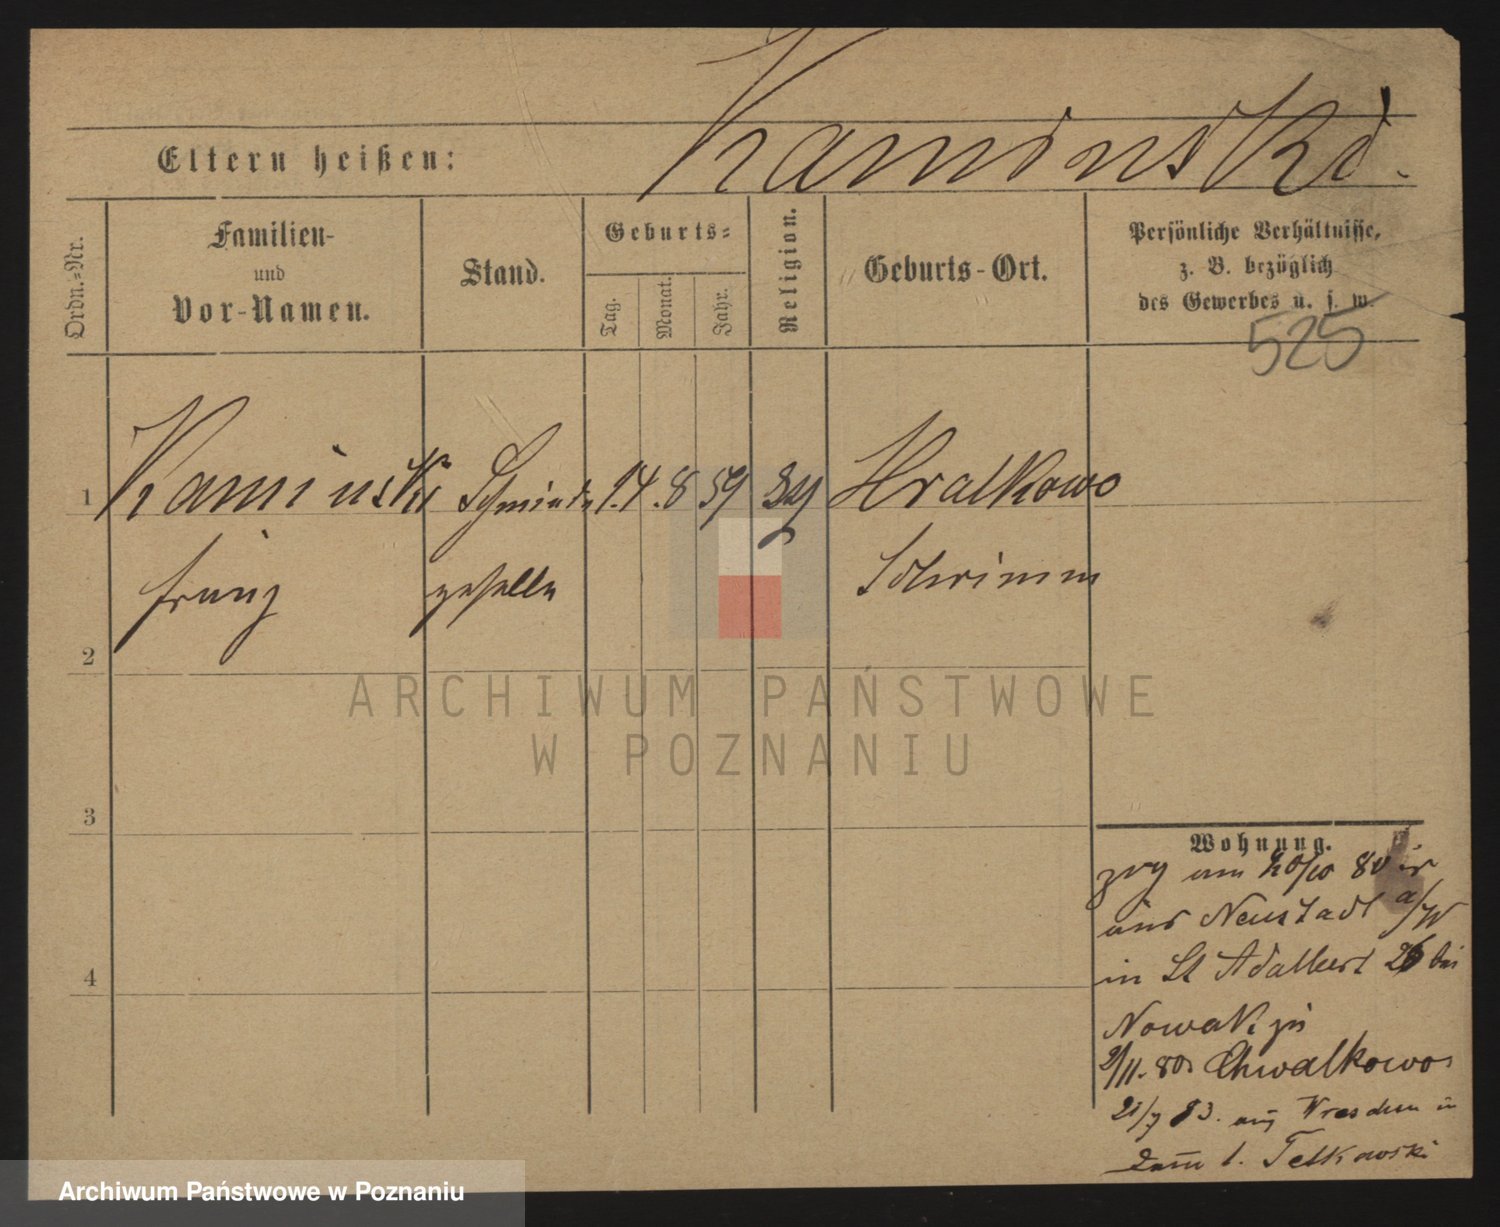 Kaminski.
Eltern heißen:
Ordn.-Nr.
Familien-
und
Vor-Namen.
Stand.
Geburts-
Tag.
Monat.
Jahr.
Religion.
Geburts-Ort.
Persönliche Verhältnisse,
z. B. bezüglich
des Gewerbes u. s. w.
525
1 Kaminski Schmiede 14. 8 59 Hralkowo
Franz geselle Schrimm
2
3
4
ARCHIWUM PAŃSTWOWE
W POZNANIU
Wohnung.
zug am 20/10 80
aus Neustadt a/W
in St Adalbert 26 bei
Nowak
2/11. 80 Chwalkowo
21/7 83. aus Wreschen in
Damm 1. Telkowski
Archiwum Państwowe w Poznaniu